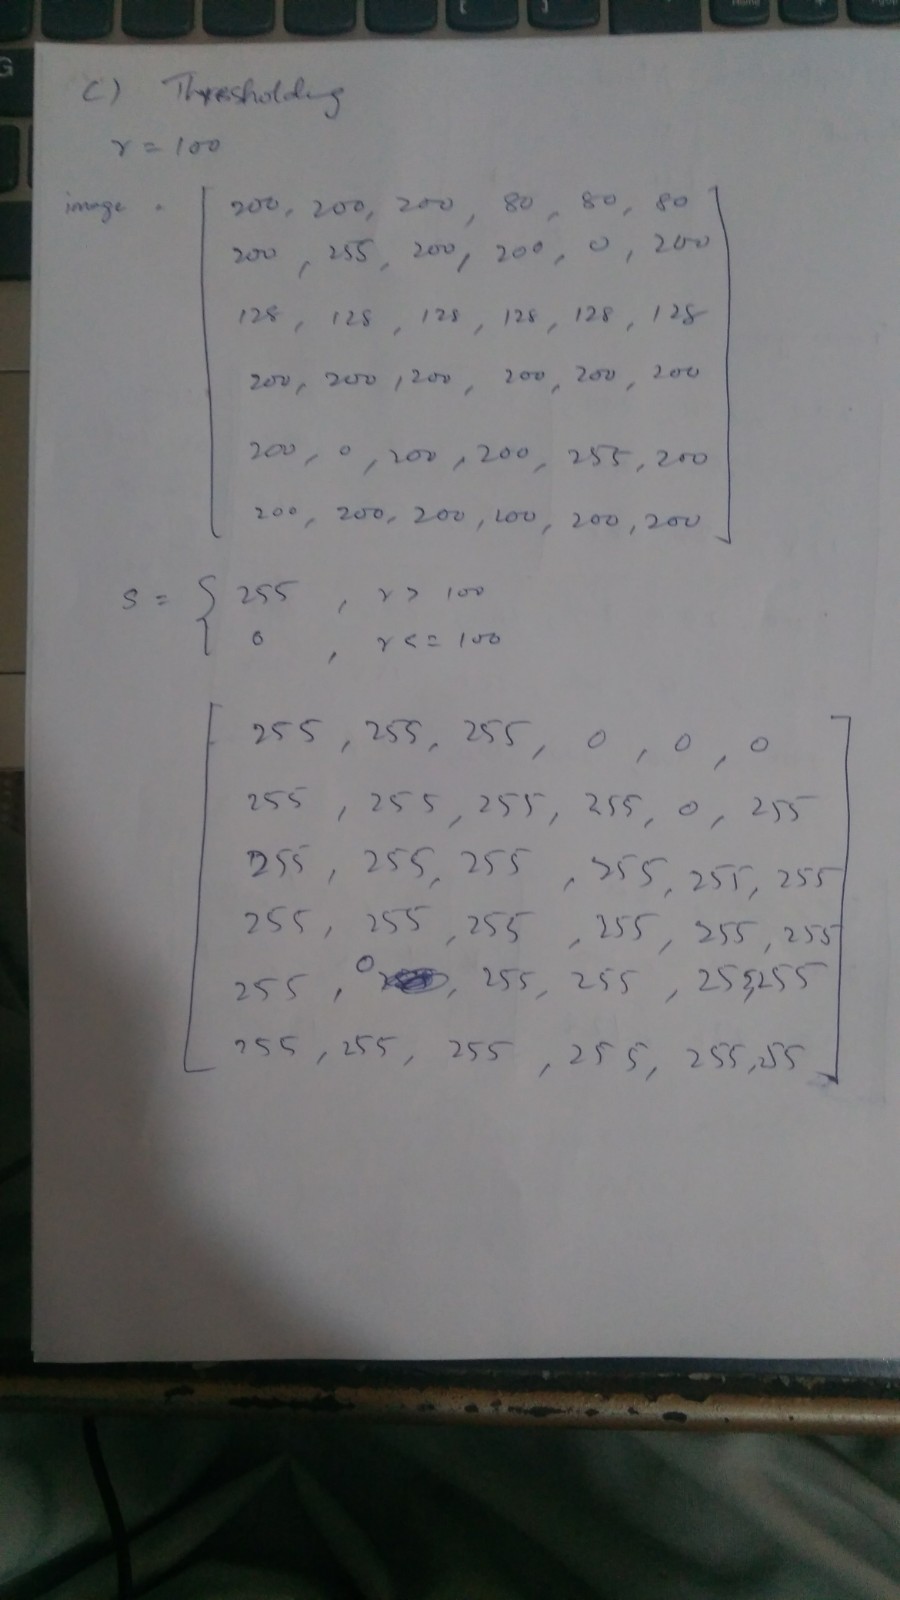 C) Thresholding
r = 100
image = [ 200, 200, 200, 80, 80, 80
200, 255, 200, 200, 0, 200
128, 128, 128, 128, 128, 128
200, 200, 200, 200, 200, 200
200, 0, 200, 200, 255, 200
200, 200, 200, 100, 200, 200 ]
S = { 255, r > 100
0, r <= 100
[ 255, 255, 255, 0, 0, 0
255, 255, 255, 255, 0, 255
255, 255, 255, 255, 255, 255
255, 255, 255, 255, 255, 255
255, 0, 255, 255, 255, 255
255, 255, 255, 255, 255, 255 ]